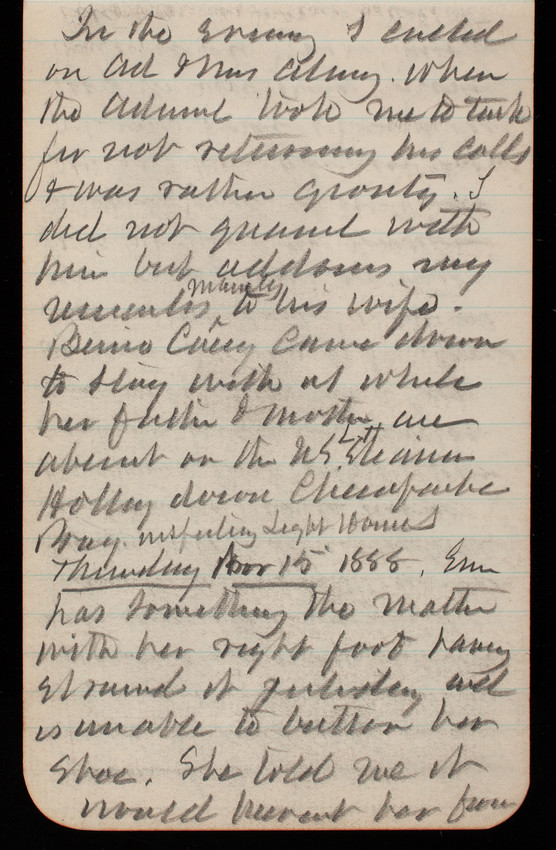 In the evening I called
on Ad & Mrs Almy. when
the Admiral took me to task
for not returning his calls
& was rather grouty. I
did not quarrel with
him but address my
remarks mainly to his wife.
Casey came down
to stay with us while
her father & mother are
absent on the US Lt H Steamer
Holly down Chesapeake
Bay. inspecting Light Houses
Thursday Nov 15 1888. Em
has something the matter
with her right foot having
strained it yesterday and
is unable to button her
shoe. She told me it
would prevent her from